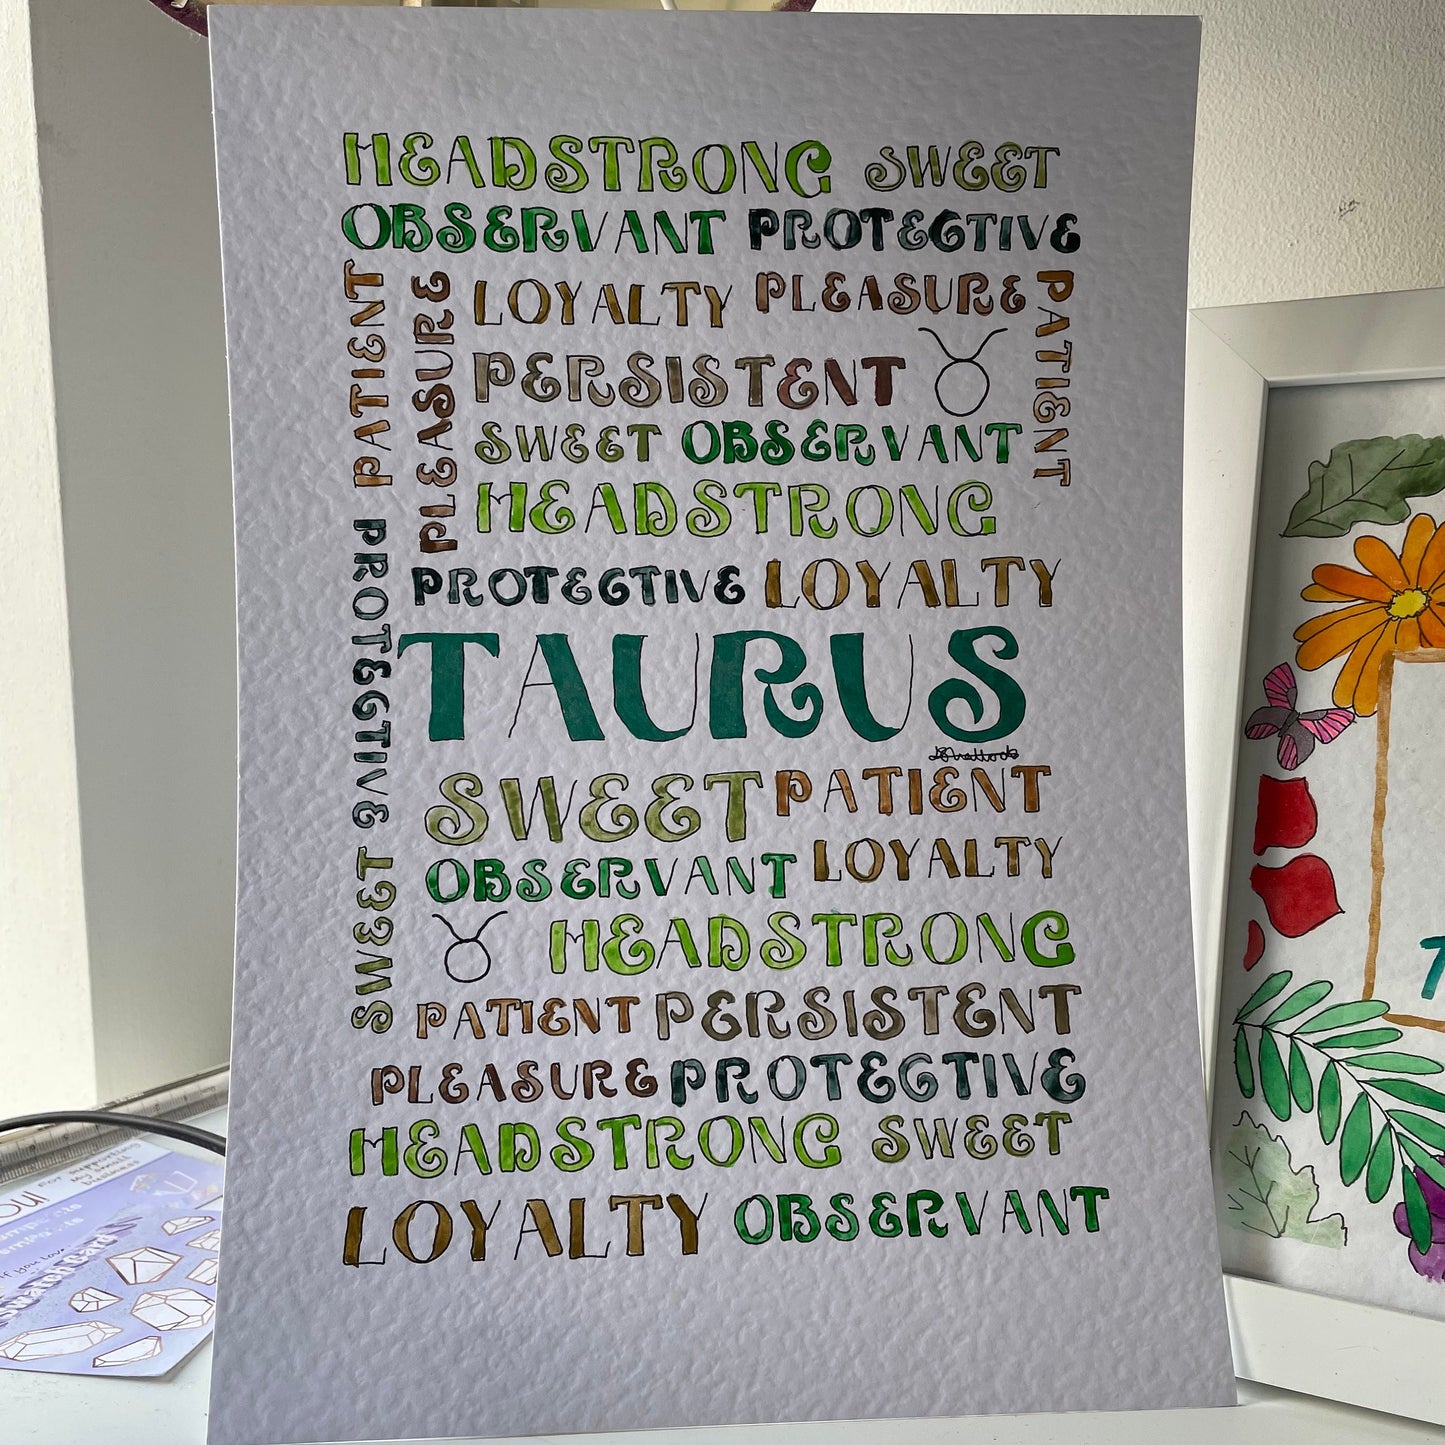 HEADSTRONG SWEET
OBSERVANT PROTECTIVE
PATIENT
PLEASURE
LOYALTY PLEASURE
PATIENT
PERSISTENT
SWEET OBSERVANT
HEADSTRONG
PROTECTIVE
PROTECTIVE LOYALTY
TAURUS
SWEET PATIENT
SWEET
OBSERVANT LOYALTY
HEADSTRONG
PATIENT PERSISTENT
PLEASURE PROTECTIVE
HEADSTRONG SWEET
LOYALTY OBSERVANT
OU
For supporting
my small
business
If you Love